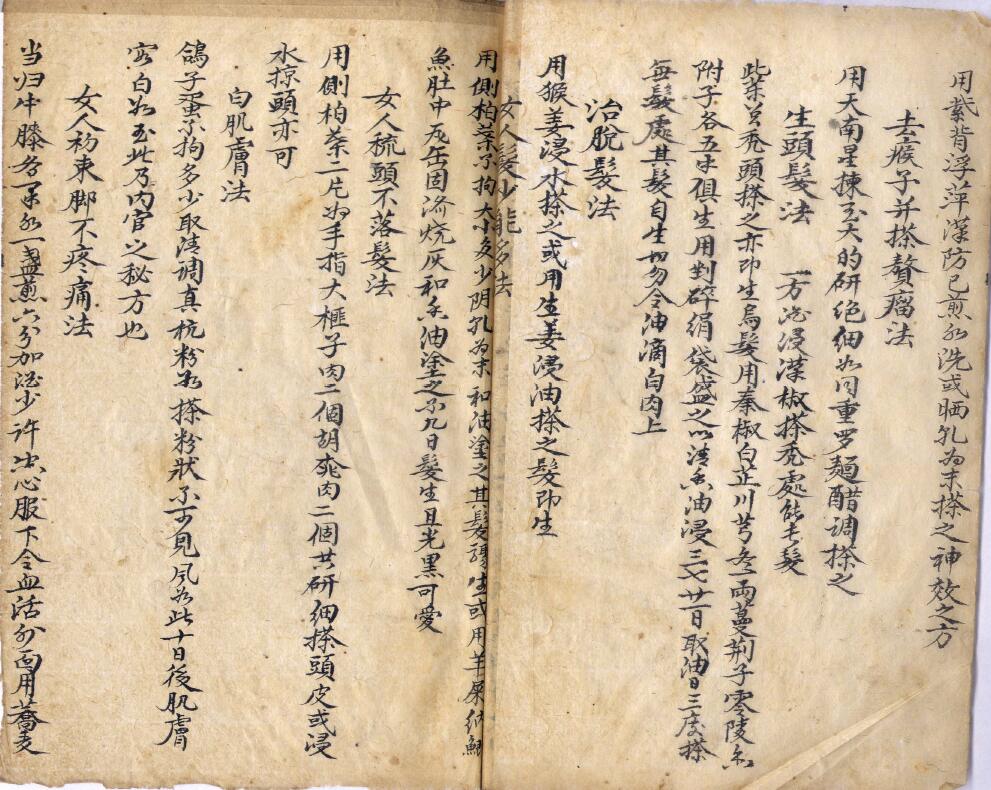 用紫背浮萍漢防已煎水洗或晒乹为末搽之神效之方
去痣子并搽贅瘤法
用大南星揀至大的研絶細如同重罗麺醋调搽之
生頭髮法　一方酒浸漢椒搽秃處能毛髮
此葉兼秃頭搽之亦即生烏髮用秦椒白芷川芎各一両蔓荆子零陵
附子各五水俱生用剉碎絹袋盛之以清香油浸三七廿一日取油日三度搽
每髮處其髮自生切勿令油滴白肉上
治脫髮法
用猴姜浸水搽之或用生姜浸油搽之髮即生
女人髮少能多法
用側柏葉不拘大小多少阴乹为末和油塗之其髮驟生或用羊屎纳鯽
魚肚中瓦缶固济烧灰和香油塗之不九日髮生且光黑可愛
女人梳頭不落髮法
用側柏葉二片如手指大榧子肉二個胡桃肉二個共研細搽頭皮或浸
水掠頭亦可
白肌膚法
鴿子蛋不拘多少取清调真杭粉如搽粉狀不可見夙如此十日後肌膚
容白如玉此乃内官之秘方也
女人初束脚不疼痛法
当归牛膝各 水一盞煎六分加酒少许空心服下令血活外面用蕎麦